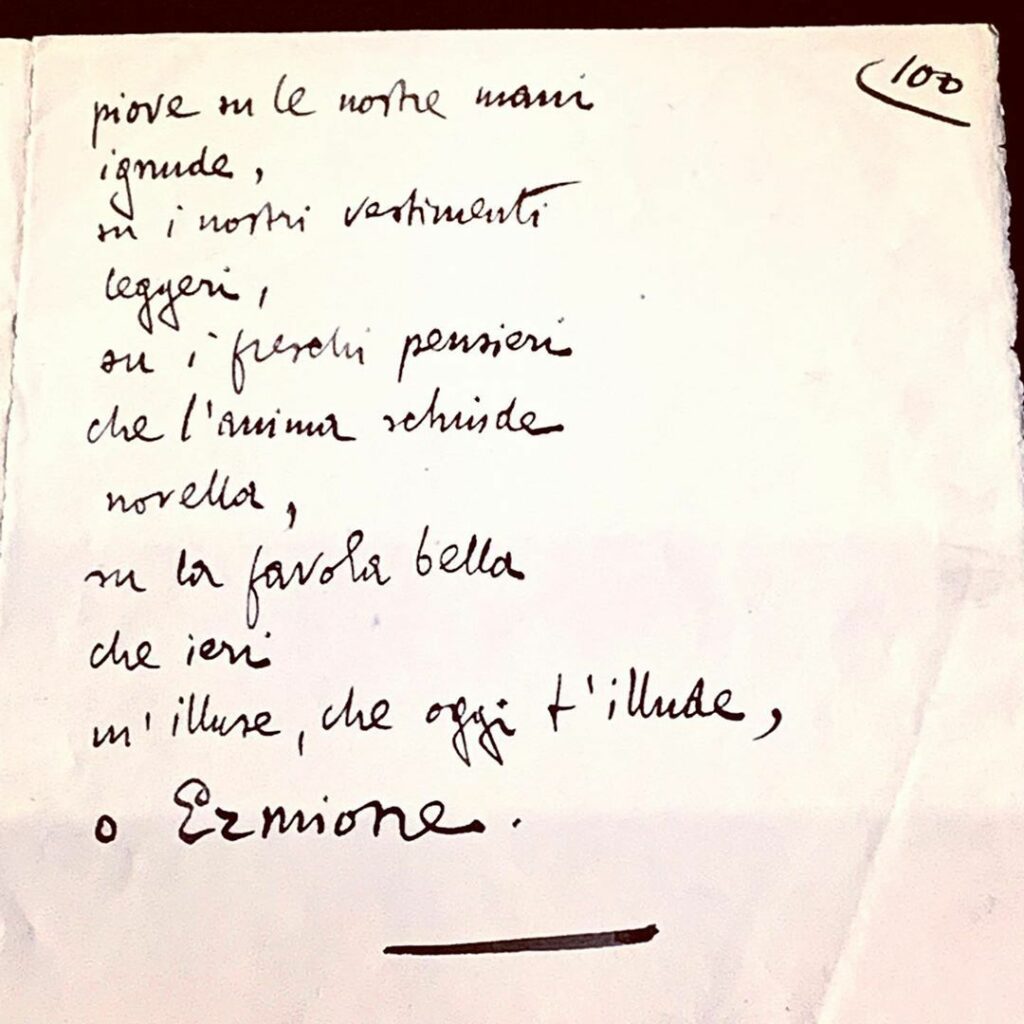 100
piove su le nostre mani
ignude,
su i nostri vestimenti
leggeri,
su i freschi pensieri
che l'anima schiude
novella,
su la favola bella
che ieri
m'illuse, che oggi t'illude,
o Ermione.